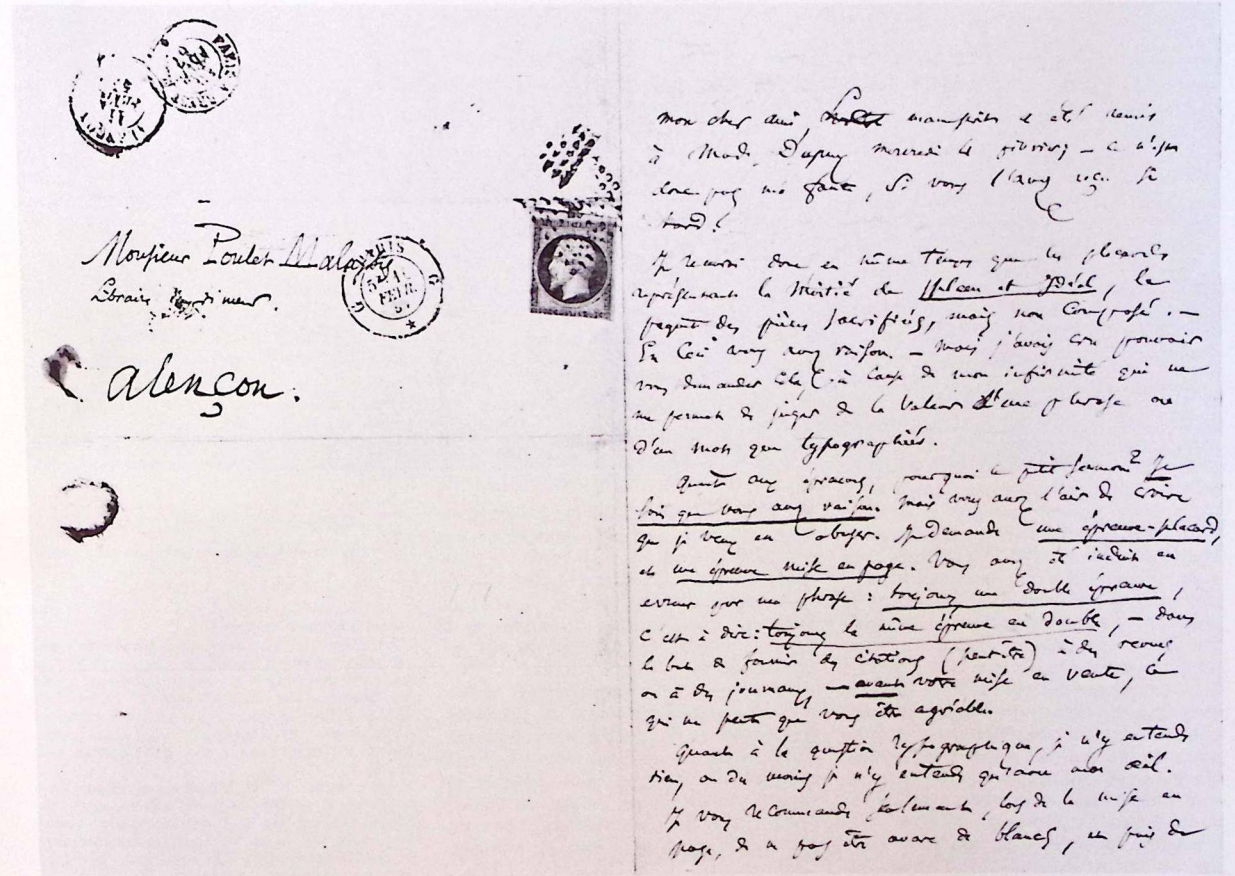 Monsieur Poulet Malassis
Libraire imprimeur.
Alençon.
PARIS
FEVR.
mon cher ami, manuscrit a été remis
à Mad. Dupuy mercredi 4 février; – ce n'est
donc pas ma faute, si vous l'avez reçu si
tard.
Je recevrai donc en même temps que les placards
représentant la Moitié du Spleen et Idéal, le
paquet des pièces sacrifiées, mais non Composé. –
En Ceci vous avez raison. – Mais j'avais cru pouvoir
vous demander cela, à cause de mon infirmité qui ne
me permet de juger de la valeur d'une phrase ou
d'un mot que typographiés.
Quant aux épreuves, pourquoi ce petit sermon? Je
sais que vous avez raison. Mais vous avez l'air de croire
que je veux en abuser. Je demande une épreuve-placard,
et une épreuve mise en page. Vous avez été induit en
erreur par ma phrase : toujours une double épreuve,
c'est à dire : toujours la même épreuve en double, – dans
le but de fournir des citations (peut-être) à des revues
ou à des journaux, – avant votre mise en vente, ce
qui ne peut que vous être agréable.
Quant à la question typographique, je n'y entends
rien, ou du moins je n'y entends qu'avec mon œil.
Je vous recommande également, lors de la mise en
page, de ne pas être avare de blancs,